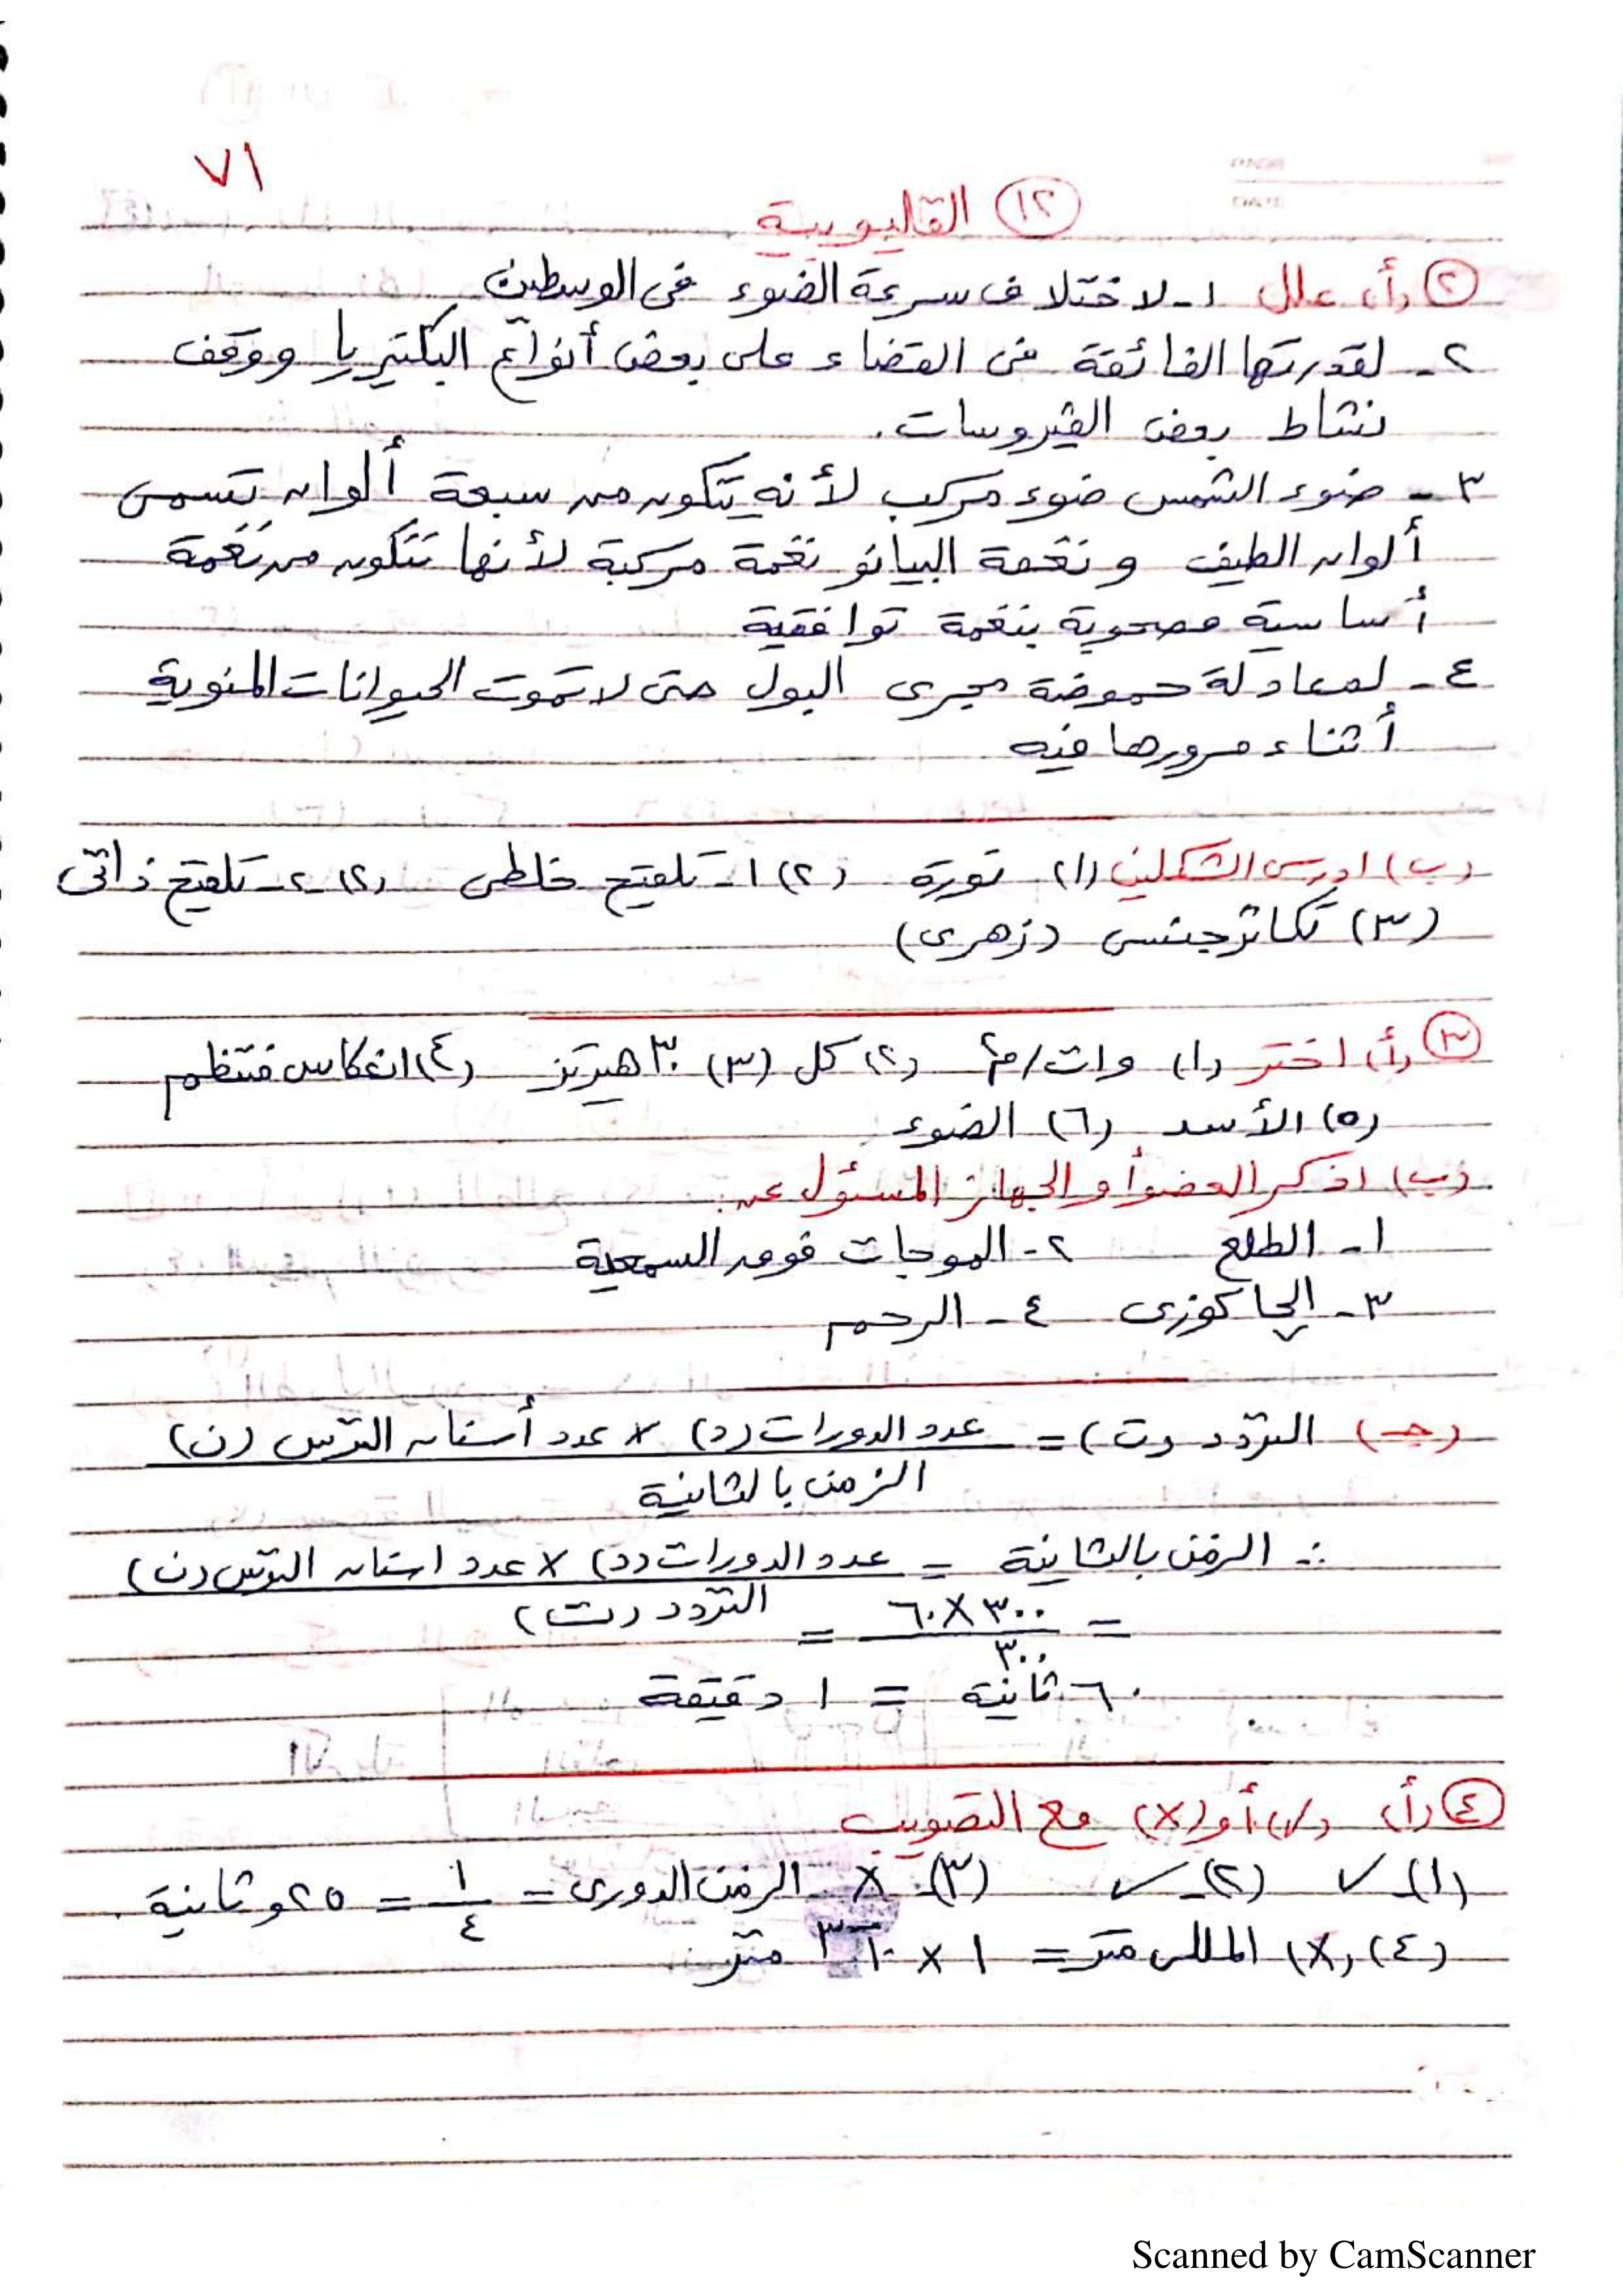 ٧١
(١٢) القليوبية
(٢) (أ) علل ١- لاختلاف سرعة الضوء فى الوسطين
٢- لقدرتها الفائقة فى القضاء على بعض أنواع البكتيريا ووقف
نشاط بعض الفيروسات.
٣- ضوء الشمس ضوء مركب لأنه يتكون من سبعة ألوان تسمى
ألوان الطيف ونغمة البيانو نغمة مركبة لأنها تتكون من نغمة
أساسية مصحوبة بنغمة توافقية
٤- لمعادلة حموضة مجرى البول حتى لا تموت الحيوانات المنوية
أثناء مرورها فيه
(ب) ادرس الشكلين (١) نورة (٢) ١- تلقيح خلطى (٢) ٢- تلقيح ذاتى
(٣) تكاثر جنسى (زهرى)
(٣) (أ) اختر (١) وات/م٢ (٢) كل (٣) ٣٠ هيرتز (٤) انعكاس منتظم
(٥) الأسد (٦) الضوء
(ب) اذكر العضو أو الجهاز المسئول عن:
١- الطلع ٢- الموجات فوق السمعية
٣- الچاكوزى ٤- الرحم
(جـ) التردد (ت) = عدد الدورات (د) × عدد أسنان الترس (ن)
الزمن بالثانية
∴ الزمن بالثانية = عدد الدورات (د) × عدد اسنان الترس (ن)
التردد (ت)
= ٣٠٠ × ٦٠ =
٣٠٠
٦٠ ثانية = ١ دقيقة
(٤) (أ) (√) أو (×) مع التصويب
(١)- ✓ (٢)- ✓ (٣)- × الزمن الدورى = ١/٤ = ٢٥و ثانية
(٤) (×) المللى متر = ١ × ١٠-٣ متر
Scanned by CamScanner